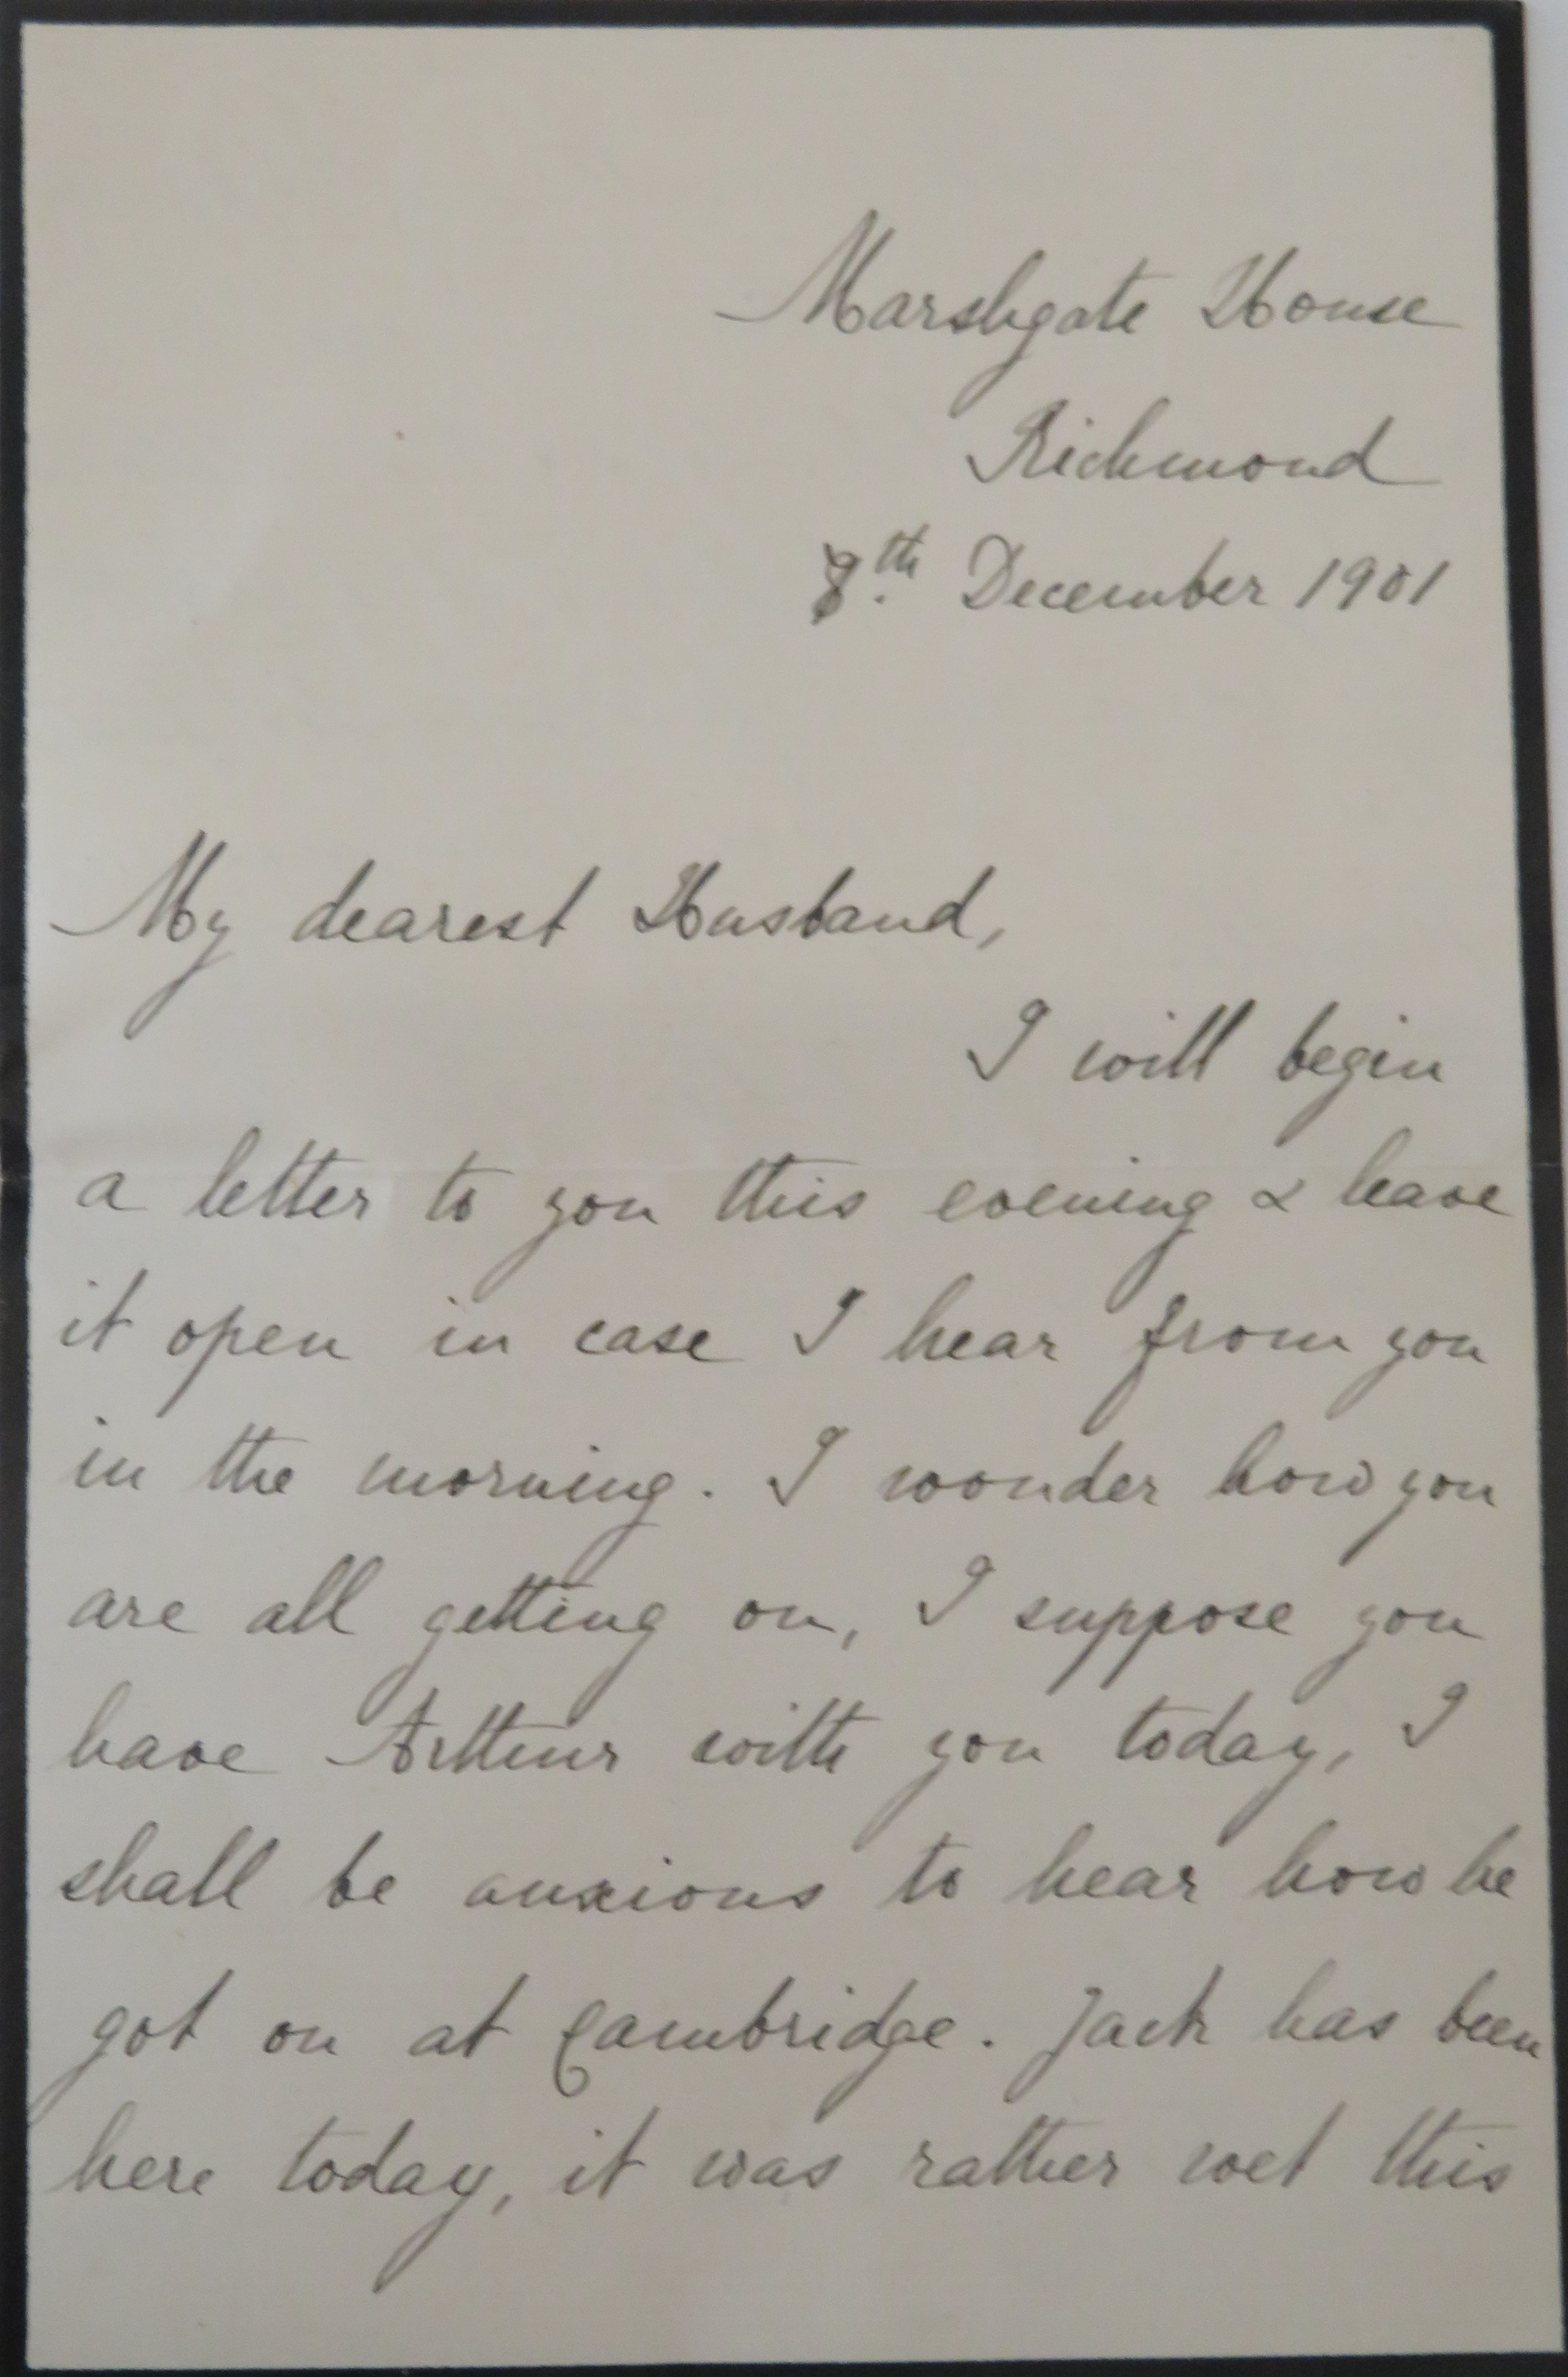 Marshgate House
Richmond
8th. December 1901
My dearest Husband,
I will begin
a letter to you this evening & leave
it open in case I hear from you
in the morning. I wonder how you
are all getting on, I suppose you
have Arthur with you today, I
shall be anxious to hear how he
got on at Cambridge. Jack has been
here today, it was rather wet this